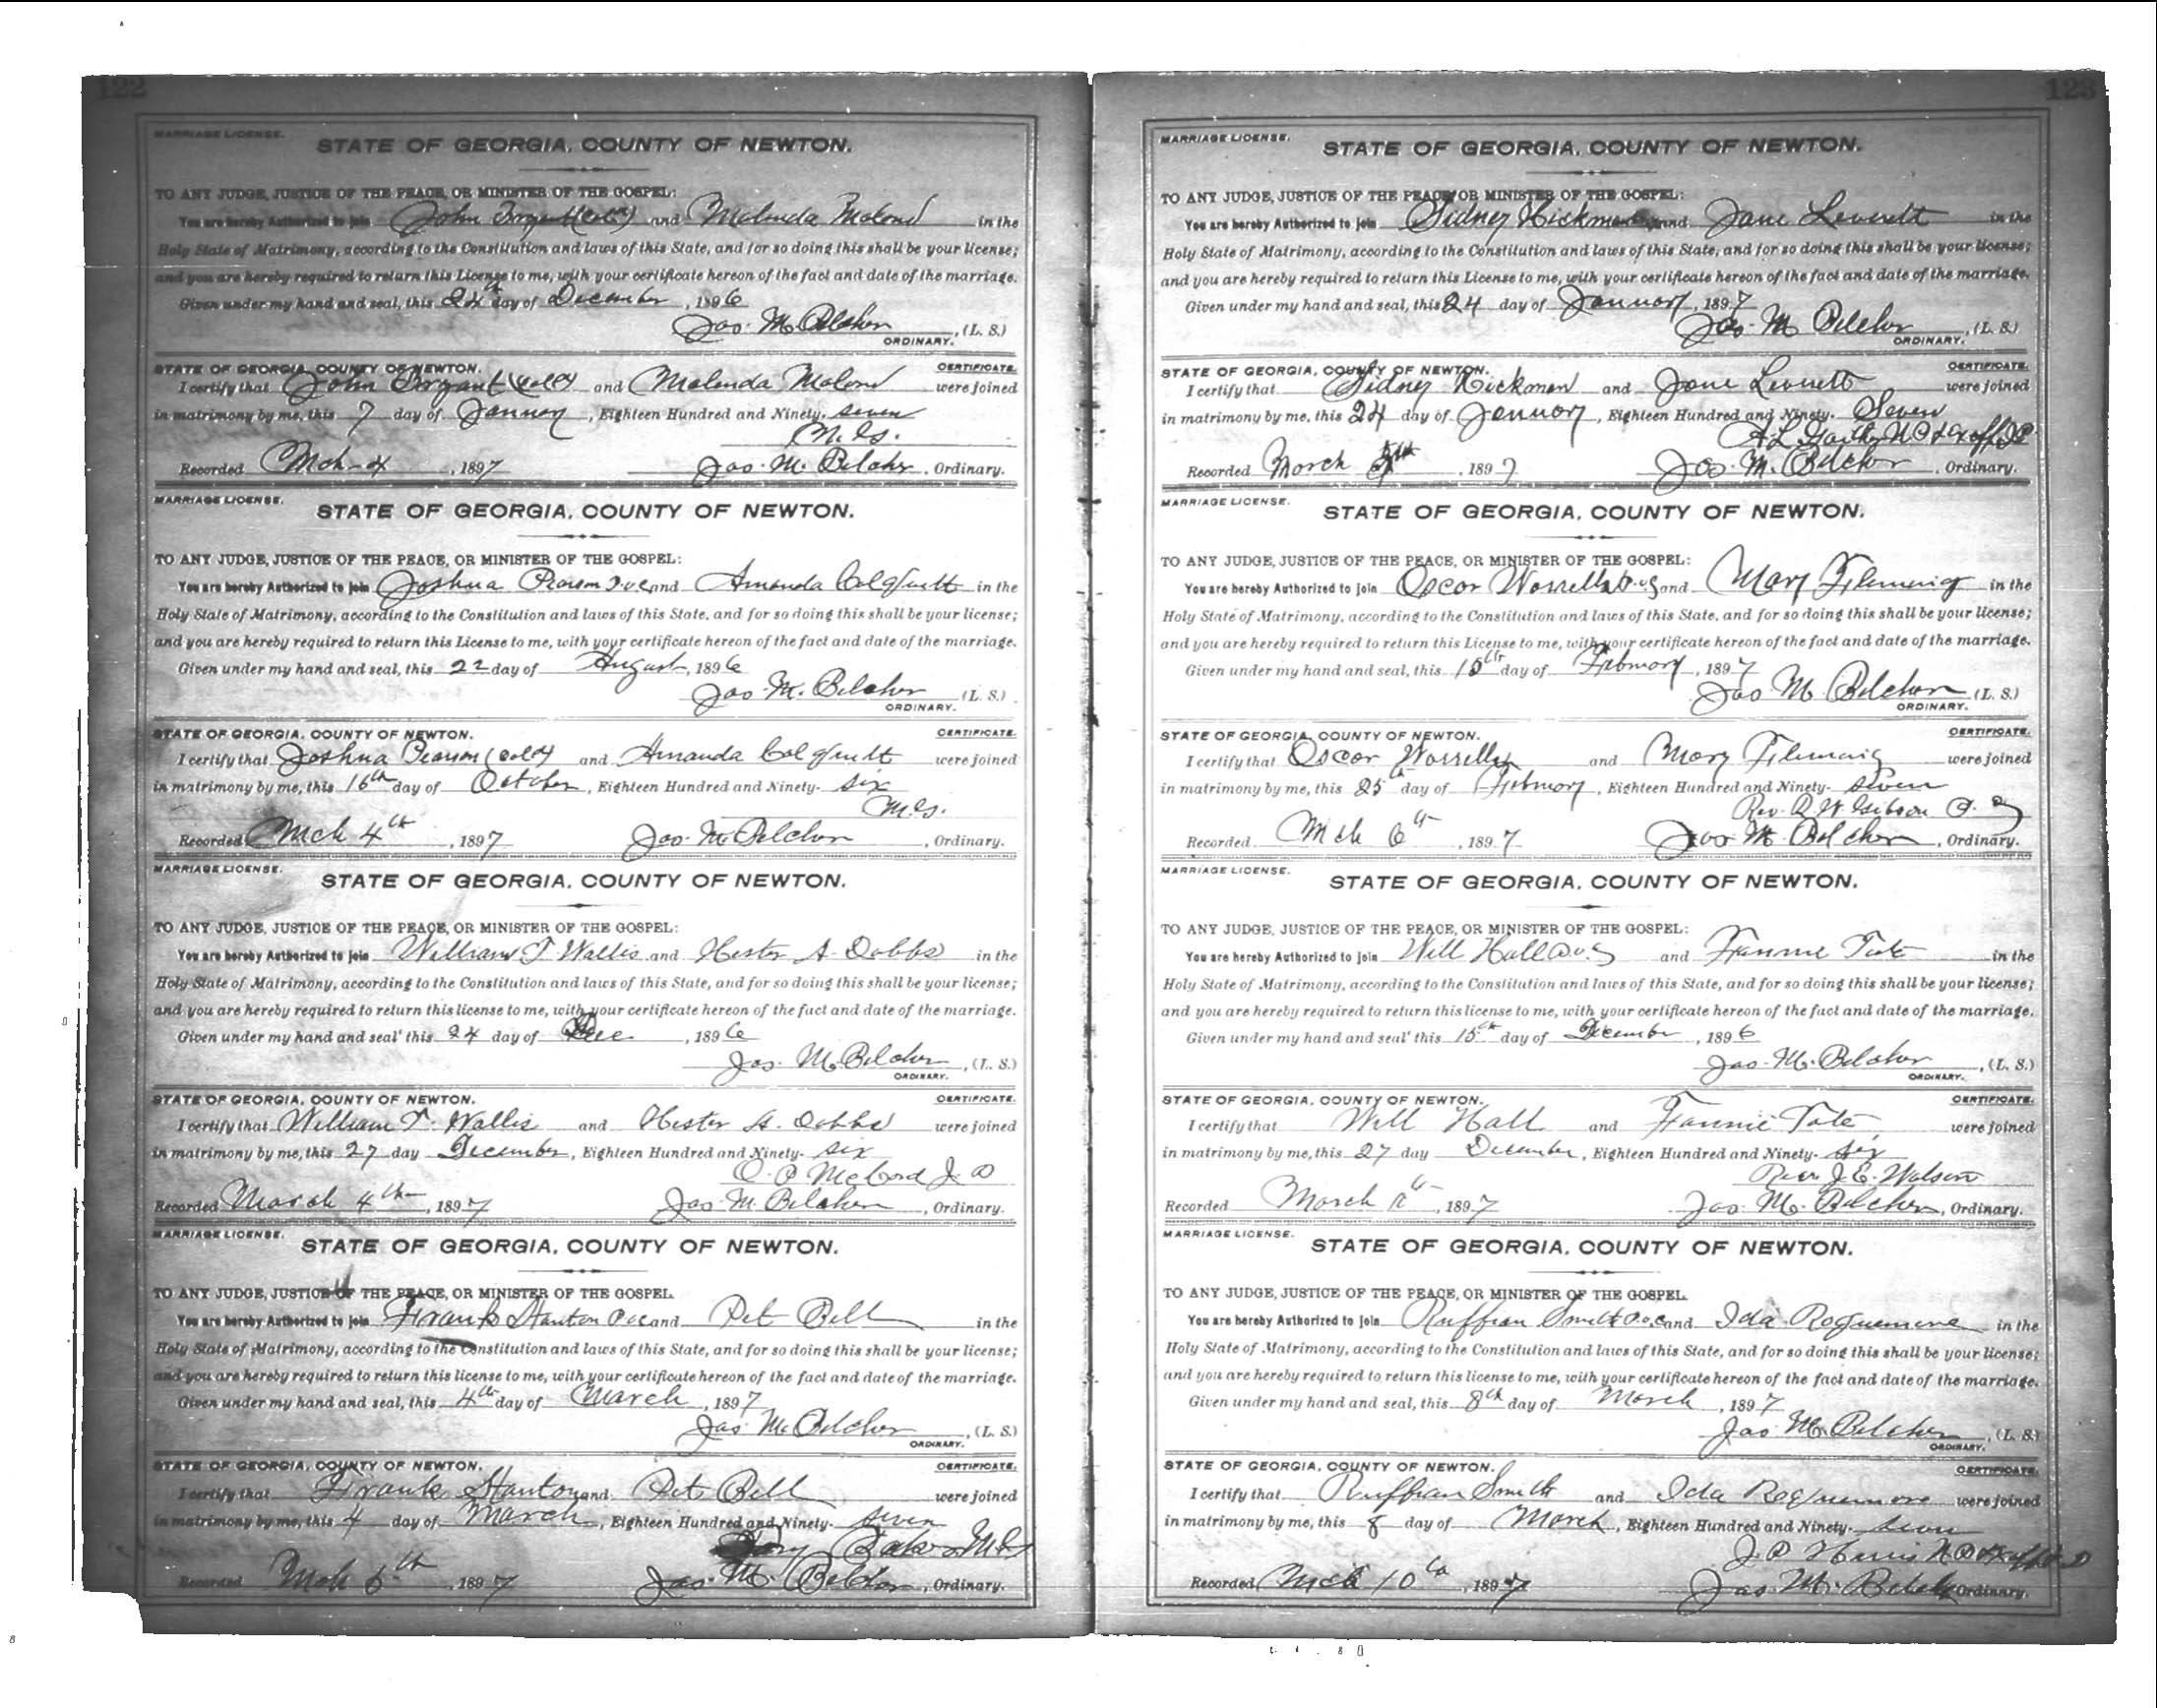 122
MARRIAGE LICENSE.
STATE OF GEORGIA, COUNTY OF NEWTON.
TO ANY JUDGE, JUSTICE OF THE PEACE, OR MINISTER OF THE GOSPEL:
You are hereby Authorized to join John Bryant (Col'd) and Malinda Malond in the
Holy State of Matrimony, according to the Constitution and laws of this State, and for so doing this shall be your license;
and you are hereby required to return this License to me, with your certificate hereon of the fact and date of the marriage.
Given under my hand and seal, this 24th day of December, 1896
Jas. M. Belcher, (L. S.)
ORDINARY.
STATE OF GEORGIA, COUNTY OF NEWTON. CERTIFICATE.
I certify that John Bryant (Cold) and Malinda Malond were joined
in matrimony by me, this 7 day of January, Eighteen Hundred and Ninety- seven
M. G.
Recorded Mch 4, 1897 Jas. M. Belcher, Ordinary.
MARRIAGE LICENSE.
STATE OF GEORGIA, COUNTY OF NEWTON.
TO ANY JUDGE, JUSTICE OF THE PEACE, OR MINISTER OF THE GOSPEL:
You are hereby Authorized to join Joshua Pearson and Amanda Colquitt in the
Holy State of Matrimony, according to the Constitution and laws of this State, and for so doing this shall be your license;
and you are hereby required to return this License to me, with your certificate hereon of the fact and date of the marriage.
Given under my hand and seal, this 22 day of August, 1896
Jas. M. Belcher (L. S.)
ORDINARY.
STATE OF GEORGIA, COUNTY OF NEWTON. CERTIFICATE.
I certify that Joshua Pearson (Cold) and Amanda Colquitt were joined
in matrimony by me, this 16th day of October, Eighteen Hundred and Ninety- six
M. G.
Recorded Mch 4th, 1897 Jas. M. Belcher, Ordinary.
MARRIAGE LICENSE.
STATE OF GEORGIA, COUNTY OF NEWTON.
TO ANY JUDGE, JUSTICE OF THE PEACE, OR MINISTER OF THE GOSPEL:
You are hereby Authorized to join William T Wallis and Hester A. Dobbs in the
Holy State of Matrimony, according to the Constitution and laws of this State, and for so doing this shall be your license;
and you are hereby required to return this license to me, with your certificate hereon of the fact and date of the marriage.
Given under my hand and seal' this 24 day of Dec, 1896
Jas. M. Belcher, (L. S.)
ORDINARY.
STATE OF GEORGIA, COUNTY OF NEWTON. CERTIFICATE.
I certify that William T. Wallis and Hester A. Dobbs were joined
in matrimony by me, this 27 day December, Eighteen Hundred and Ninety- six
O. P. McCord J. P
Recorded March 4th, 1897 Jas. M. Belcher, Ordinary.
MARRIAGE LICENSE.
STATE OF GEORGIA, COUNTY OF NEWTON.
TO ANY JUDGE, JUSTICE OF THE PEACE, OR MINISTER OF THE GOSPEL.
You are hereby Authorized to join Frank Stanton and Pet Bell in the
Holy State of Matrimony, according to the Constitution and laws of this State, and for so doing this shall be your license;
and you are hereby required to return this license to me, with your certificate hereon of the fact and date of the marriage.
Given under my hand and seal, this 4th day of March, 1897
Jas. M. Belcher, (L. S.)
ORDINARY.
STATE OF GEORGIA, COUNTY OF NEWTON. CERTIFICATE.
I certify that Frank Stanton and Pet Bell were joined
in matrimony by me, this 4 day of March, Eighteen Hundred and Ninety- seven
Baker M G
Recorded Mch 5th, 1897 Jas. M. Belcher, Ordinary.
123
MARRIAGE LICENSE.
STATE OF GEORGIA, COUNTY OF NEWTON.
TO ANY JUDGE, JUSTICE OF THE PEACE, OR MINISTER OF THE GOSPEL:
You are hereby Authorized to join Sidney Hickman and Jane Leverett in the
Holy State of Matrimony, according to the Constitution and laws of this State, and for so doing this shall be your license;
and you are hereby required to return this License to me, with your certificate hereon of the fact and date of the marriage.
Given under my hand and seal, this 24 day of January, 1897
Jas. M Belcher, (L. S.)
ORDINARY.
STATE OF GEORGIA, COUNTY OF NEWTON. CERTIFICATE.
I certify that Sidney Hickman and Jane Leverett were joined
in matrimony by me, this 24 day of January, Eighteen Hundred and Ninety- Seven
A L N P & Exoff J P
Recorded March 5th, 1897 Jas. M. Belcher, Ordinary.
MARRIAGE LICENSE.
STATE OF GEORGIA, COUNTY OF NEWTON.
TO ANY JUDGE, JUSTICE OF THE PEACE, OR MINISTER OF THE GOSPEL:
You are hereby Authorized to join Oscar Worrells and Mary Fleming in the
Holy State of Matrimony, according to the Constitution and laws of this State, and for so doing this shall be your license;
and you are hereby required to return this License to me, with your certificate hereon of the fact and date of the marriage.
Given under my hand and seal, this 15th day of February, 1897
Jas M. Belcher (L. S.)
ORDINARY.
STATE OF GEORGIA, COUNTY OF NEWTON. CERTIFICATE.
I certify that Oscar Worrells and Mary Fleming were joined
in matrimony by me, this 25th day of February, Eighteen Hundred and Ninety- seven
Rev. R. W. Gibson
Recorded Mch 6th, 1897 Jas M. Belcher, Ordinary.
MARRIAGE LICENSE.
STATE OF GEORGIA, COUNTY OF NEWTON.
TO ANY JUDGE, JUSTICE OF THE PEACE, OR MINISTER OF THE GOSPEL:
You are hereby Authorized to join Will Hall and Fannie Tate in the
Holy State of Matrimony, according to the Constitution and laws of this State, and for so doing this shall be your license;
and you are hereby required to return this license to me, with your certificate hereon of the fact and date of the marriage.
Given under my hand and seal' this 15th day of December, 1896
Jas. M. Belcher, (L. S.)
ORDINARY.
STATE OF GEORGIA, COUNTY OF NEWTON. CERTIFICATE.
I certify that Will Hall and Fannie Tate were joined
in matrimony by me, this 27 day December, Eighteen Hundred and Ninety- six
Rev. J. E. Watson
Recorded March, 1897 Jas. M. Belcher, Ordinary.
MARRIAGE LICENSE.
STATE OF GEORGIA, COUNTY OF NEWTON.
TO ANY JUDGE, JUSTICE OF THE PEACE, OR MINISTER OF THE GOSPEL.
You are hereby Authorized to join Ruffian Smith and Ida Roquemore in the
Holy State of Matrimony, according to the Constitution and laws of this State, and for so doing this shall be your license;
and you are hereby required to return this license to me, with your certificate hereon of the fact and date of the marriage.
Given under my hand and seal, this 8th day of March, 1897
Jas. M. Belcher, (L. S.)
ORDINARY.
STATE OF GEORGIA, COUNTY OF NEWTON. CERTIFICATE.
I certify that Ruffian Smith and Ida Roquemore were joined
in matrimony by me, this 8 day of March, Eighteen Hundred and Ninety- seven
J. P Harris N P & Exoff J P
Recorded Mch 10th, 1897 Jas. M. Belcher Ordinary.